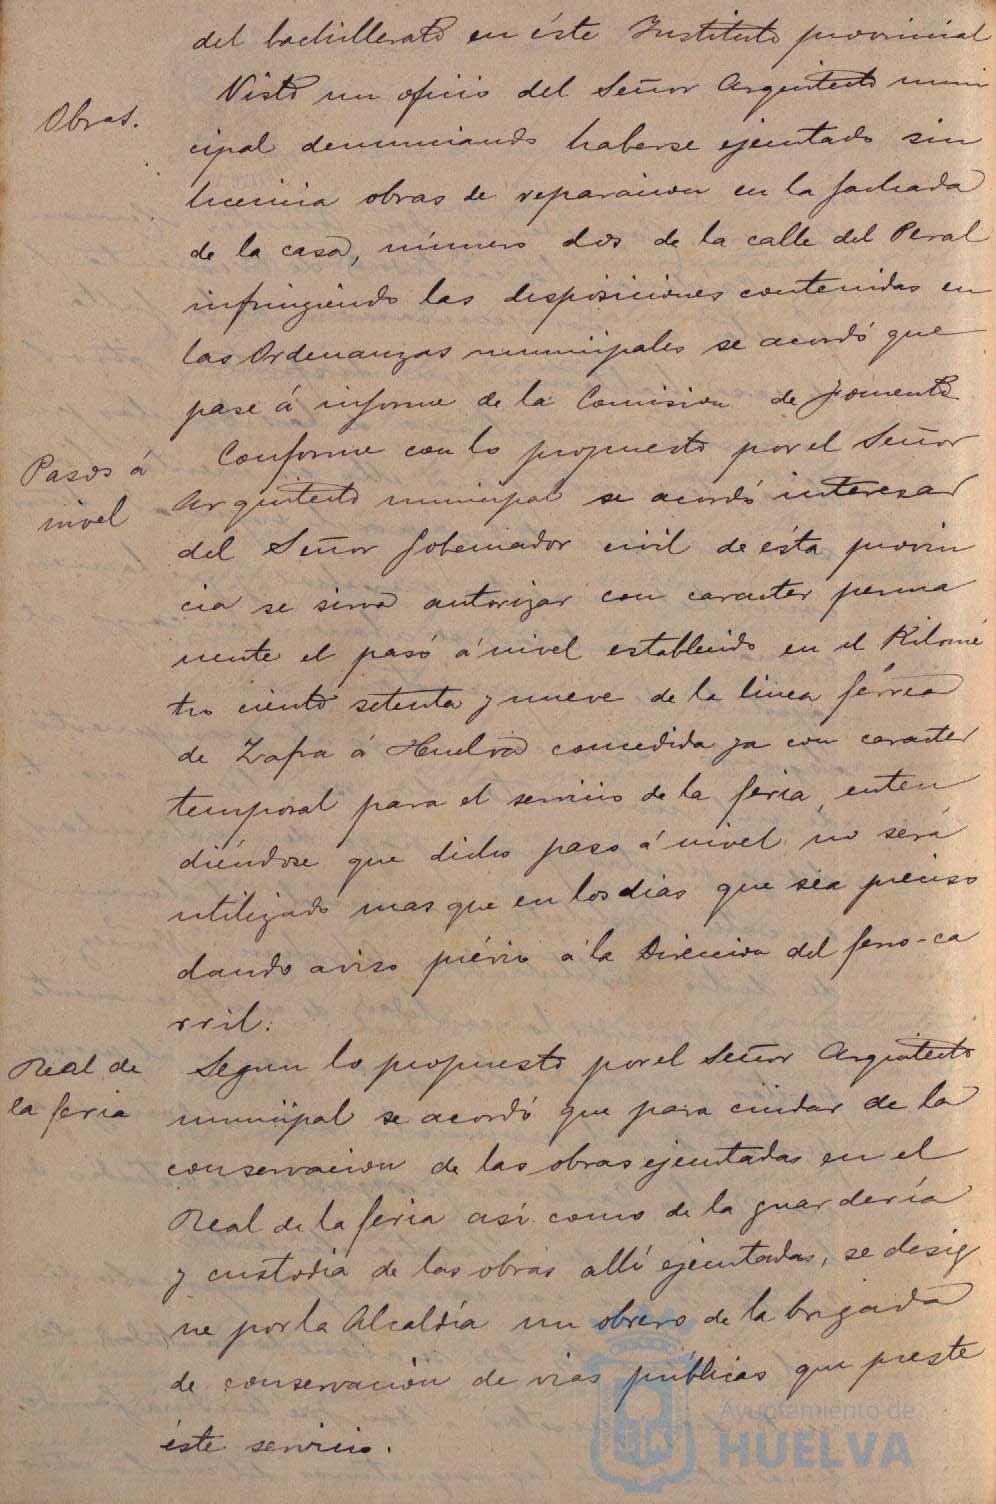 del bachillerato en éste Instituto provincial
Obras.
Visto un oficio del Señor Arquitecto muni
cipal denunciando haberse ejecutado sin
licencia obras de reparacion en la fachada
de la casa, número dos de la calle del Peral
infringiendo las disposiciones contenidas en
las Ordenanzas municipales se acordó que
pase á informe de la Comision de Fomento
Pasos á
nivel
Conforme con lo propuesto por el Señor
Arquitecto municipal se acordó interesar
del Señor Gobernador civil de ésta provin
cia se sirva autorizar con caracter perma
nente el pasó á nivel establecido en el Kilome
tro ciento setenta y nueve de la linea férrea
de Zafra á Huelva concedida ya con caracter
temporal para el servicio de la feria, enten
diéndose que dicho paso á nivel no será
utilizado mas que en los dias que sea preciso
dando aviso prévio á la Direccion del ferro-ca
rril.
Real de
la feria
Segun lo propuesto por el Señor Arquitecto
municipal se acordó que para cuidar de la
conservacion de las obras ejecutadas en el
Real de la feria asi como de la guardería
y custodia de las obras allí ejecutadas, se desig
ne por la Alcaldía un obrero de la brigada
de conservación de vias públicas que preste
éste servicio.
Ayuntamiento de
HUELVA